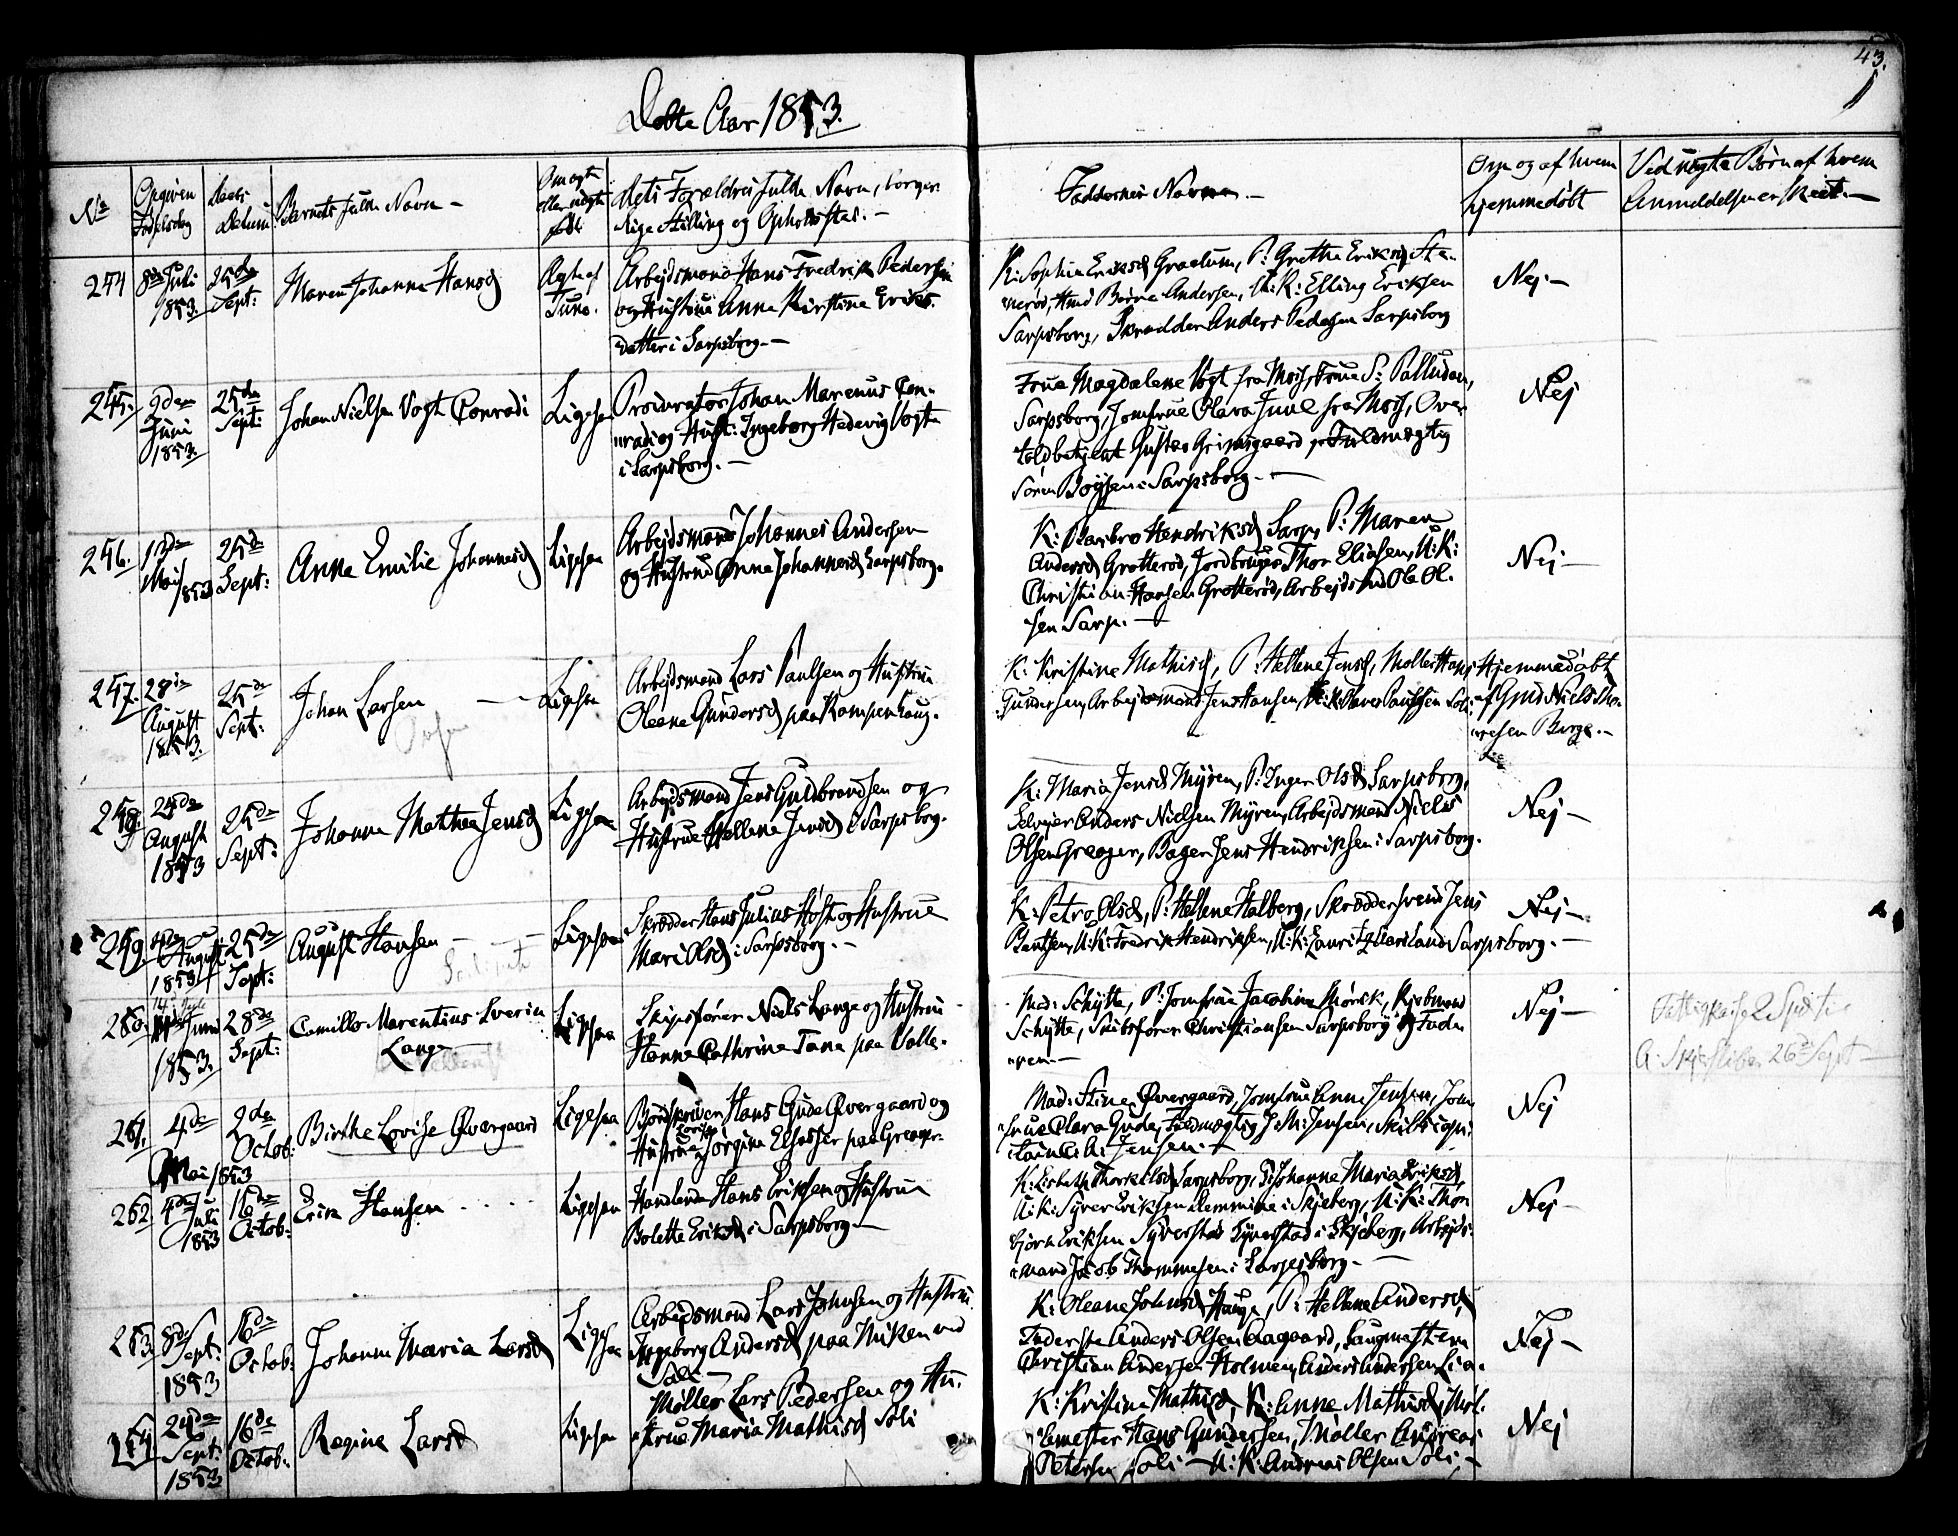 43.
Døbte Aar 1853.
No
Opgiven
Fødselsdag
Daabs
Datum
Barnets fulde Navn -
Om ægte
eller uægte
født
Dets Forældres fulde Navn, borger-
lige Stilling og Opholdssted. -
Faddernes Navne -
Om og af hvem
hjemmedøbt
Ved uægte Børn af hvem
Anmeldelsen er skeet. -
254
8de Juli
1853.
25de
Sept:
Maren Johanna Hansd
Ægte
Arbejdsmand Hans Fredrik Pedersen
og Hustrue Anna Kirstine Eriks-
datter i Sarpsborg. -
K: Sophie Eriksd Graalum, P: Grethe Eriksd
Andersen, U: K: Elling Eriksen
Sarpsborg, Skrædder Anders Pedersen Sarpsborg
Nej. -
255.
9den
Juni
1853.
25de
Sept:
Johan Nielsen Vogt Conradi
Ligesaa
Procurator Johan Marenus Con-
radi og Hust: Ingeborg Hedevig Vogt
i Sarpsborg. -
Frue Magdalene Vogt fra Moss, Frue S: Palludan,
Sarpsborg, Jomfrue Clara Juul fra Moss, Over-
toldbetjent Gustav Grimsgaard, Fuldmægtig
Søren Boysen i Sarpsborg. -
Nej
256.
Mai 1853
25de
Sept:
Anne Emilie Johannesd
Ligesaa
Arbejdsmand Johannes Andersen
og Hustrue Anne Johannesd Sarpsborg.
K: Barbro Hendriksd Sarp, P: Maren
Andersd Grotterød, Jordbruger Thor Eliasen, U: K:
Christian Hansen Grotterød, Arbejdsmd Ole Ol-
sen Sarp. -
Nej -
257.
28de
August
1853.
25de
Sept:
Johan Larsen
Ligesaa
Arbejdsmand Lars Paulsen og Hustrue
Oleane Gundersd paa Kampenhaug.
K: Kristine Mathisd, P: Hellene Jensd, Møller Hans
Gundersen, Arbejdsmand Jens Hansen, U: K: Oluves Paulsen Soli
Hjemmedøbt
af Gmd Niels
Borge. -
258.
24de
August
1853
25de
Sept:
Johanna Mathea Jensd
Ligesaa
Arbejdsmand Jens Guldbrandsen og
Hustrue Hellene Jensd i Sarpsborg.
K: Maria Jensd Myren, P: Inger Olsd Sarpsborg,
Selvejer Anders Nielsen Myren, Arbejdsmand Niels
Olsen Greager, Bager Jens Hendriksen i Sarpsborg.
Nej -
259.
August
1853
25de
Sept:
August Hansen
Ligesaa
Skrædder Hans Julius Høst og Hustrue
Mari Olsd i Sarpsborg. -
K: Petra Olsd, P: Hellene Halberg, Skræddersvend Jens
Bentsen, U: K: Fredrik Hendriksen, U: K: Sarpsborg. -
Nej -
260.
1853.
28de
Sept:
Camillo Marentius Severin
Lange
Ligesaa
Skipsfører Niels Lange og Hustrue
Hanne Cathrine Tane paa Valle.
Mad: Schytte, P: Jomfrue Jacobine Mørck, Kjøbmand
Schytte, Skibsfører Christiansen Sarpsborg og Fade-
ren -
Nej -
A: Skjeberg 26de Sept
261.
4de
Mai 1853
2den
Octob:
Birthe Lovise Øvergaard
Ligesaa
Hans Gude Øvergaard og
Hustrue Jørgine Elsasser paa Greager.
Mad: Stine Øvergaard, Jomfrue Anne Jensen, Jom-
frue Clara Gude, Fuldmægtig J. M: Jensen, Skibscapi-
tain C: A: Jensen. -
Nej
262
4de
Juli
1853
16de
Octob:
Erik Hansen
Ligesaa
Handlende Hans Eriksen og Hustrue
Bolette Eriksd i Sarpsborg. -
K: Lisbeth Thorkilsd Sarpsborg, P: Johanne Maria Eriksd,
U: K: Syver Eriksen Lemmine i Skjeberg, U: K: Thor-
bjørn Eriksen Syverstad i Skjeberg, Arbejds-
mand Jacob Thommesen i Sarpsborg. -
Nej -
263.
8de
Sept:
1853
16de
Octob:
Johanne Maria Larsd
Ligesaa
Arbejdsmand Lars Johnsen og Hustrue
Ingeborg Andersd paa Huken ved
Soli -
K: Oleane Johnsd Hauge, P: Hellene Andersd,
Anders Olsen Aagaard, Saugmester
Christian Andersen Holmen, Anders Andersen Lie.
Nej -
264
24de
Sept:
1853
16de
Octob:
Regine Larsd
Ligesaa
Møller Lars Pedersen og Hu-
strue Maria Mathisd Soli
K: Kristine Mathisd, K: Anne Mathisd, Møl-
lemester Hans Gundersen, Møller Andreas
Petersen Soli - U: K: Andreas Olsen Soli. -
Nej